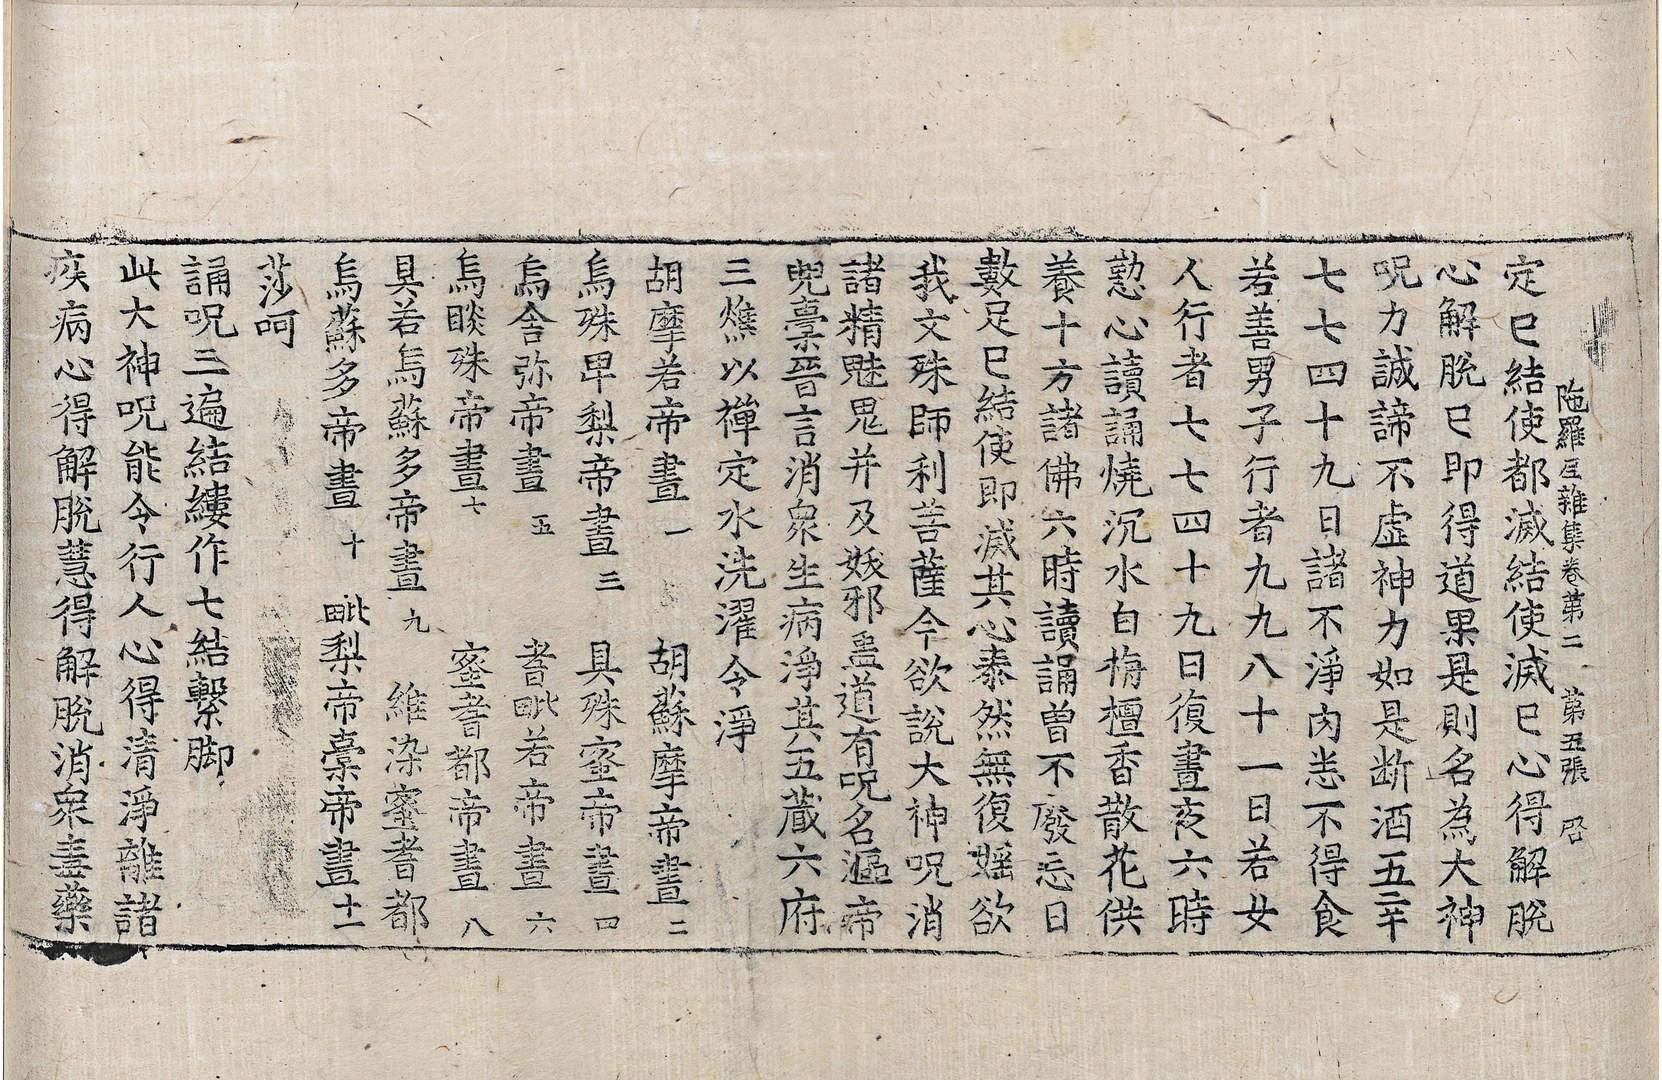 陁羅尼雜集卷第二　第五張　啓
定已結使都滅結使滅已心得解脫
心解脫已即得道果是則名為大神
呪力誠諦不虛神力如是断酒五辛
七七四十九日諸不淨肉悉不得食
若善男子行者九九八十一日若女
人行者七七四十九日復晝夜六時
懃心讀誦燒沉水白栴檀香散花供
養十方諸佛六時讀誦曽不廢忘日
數足已結使即滅其心泰然無復婬欲
我文殊師利菩薩今欲說大神呪消
諸精魅鬼并及妖邪蠱道有呪名漚帝
兜櫜晉言消衆生病淨其五藏六府
三燋以禪定水洗濯令淨
胡摩若帝晝一　胡蘇摩帝晝二
烏殊卑梨帝晝三　具殊蜜帝晝四
烏舍弥帝晝五　耆毗若帝晝六
烏睒殊帝晝七　蜜耆都帝晝八
具若烏蘇多帝晝九　維染蜜耆都
烏蘇多帝晝十　毗梨帝櫜帝晝十一
莎呵
誦呪三遍結縷作七結繫脚
此大神呪能令行人心得清淨離諸
疾病心得解脫慧得解脫消衆毒藥